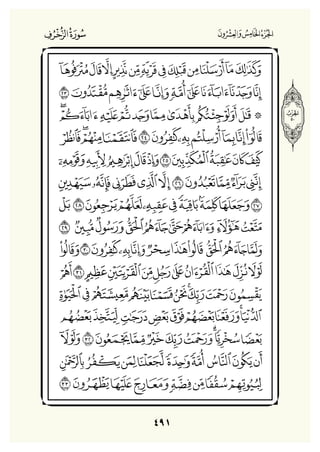 الجُزْءُ الخَامِسُ وَالعِشْرُونَ
سُورَةُ الزُّخْرُفِ
وَكَذَٰلِكَ مَآ أَرْسَلْنَا مِن قَبْلِكَ فِي قَرْيَةٍ مِّن نَّذِيرٍ إِلَّا قَالَ مُتْرَفُوهَآ
إِنَّا وَجَدْنَآ ءَابَآءَنَا عَلَىٰٓ أُمَّةٍ وَإِنَّا عَلَىٰٓ ءَاثَٰرِهِم مُّقْتَدُونَ ٢٣
۞ قَٰلَ أَوَلَوْ جِئْتُكُم بِأَهْدَىٰ مِمَّا وَجَدتُّمْ عَلَيْهِ ءَابَآءَكُمْۖ
قَالُوٓا۟ إِنَّا بِمَآ أُرْسِلْتُم بِهِۦ كَٰفِرُونَ ٢٤ فَٱنتَقَمْنَا مِنْهُمْۖ فَٱنظُرْ
كَيْفَ كَانَ عَٰقِبَةُ ٱلْمُكَذِّبِينَ ٢٥ وَإِذْ قَالَ إِبْرَٰهِيمُ لِأَبِيهِ وَقَوْمِهِۦٓ
إِنَّنِي بَرَآءٌ مِّمَّا تَعْبُدُونَ ٢٦ إِلَّا ٱلَّذِي فَطَرَنِي فَإِنَّهُۥ سَيَهْدِينِ
٢٧ وَجَعَلَهَا كَلِمَةًۢ بَاقِيَةً فِي عَقِبِهِۦ لَعَلَّهُمْ يَرْجِعُونَ ٢٨ بَلْ
مَتَّعْتُ هَٰٓؤُلَآءِ وَءَابَآءَهُمْ حَتَّىٰ جَآءَهُمُ ٱلْحَقُّ وَرَسُولٌ مُّبِينٌ ٢٩
وَلَمَّا جَآءَهُمُ ٱلْحَقُّ قَالُوا۟ هَٰذَا سِحْرٌ وَإِنَّا بِهِۦ كَٰفِرُونَ ٣٠ وَقَالُوا۟
لَوْلَا نُزِّلَ هَٰذَا ٱلْقُرْءَانُ عَلَىٰ رَجُلٍ مِّنَ ٱلْقَرْيَتَيْنِ عَظِيمٍ ٣١ أَهُمْ
يَقْسِمُونَ رَحْمَتَ رَبِّكَۚ نَحْنُ قَسَمْنَا بَيْنَهُم مَّعِيشَتَهُمْ فِي ٱلْحَيَوٰةِ
ٱلدُّنْيَاۚ وَرَفَعْنَا بَعْضَهُمْ فَوْقَ بَعْضٍ دَرَجَٰتٍ لِّيَتَّخِذَ بَعْضُهُم
بَعْضًا سُخْرِيًّاۗ وَرَحْمَتُ رَبِّكَ خَيْرٌ مِّمَّا يَجْمَعُونَ ٣٢ وَلَوْلَآ
أَن يَكُونَ ٱلنَّاسُ أُمَّةً وَٰحِدَةً لَّجَعَلْنَا لِمَن يَكْفُرُ بِٱلرَّحْمَٰنِ
لِبُيُوتِهِمْ سُقُفًا مِّن فِضَّةٍ وَمَعَارِجَ عَلَيْهَا يَظْهَرُونَ ٣٣
٤٩١